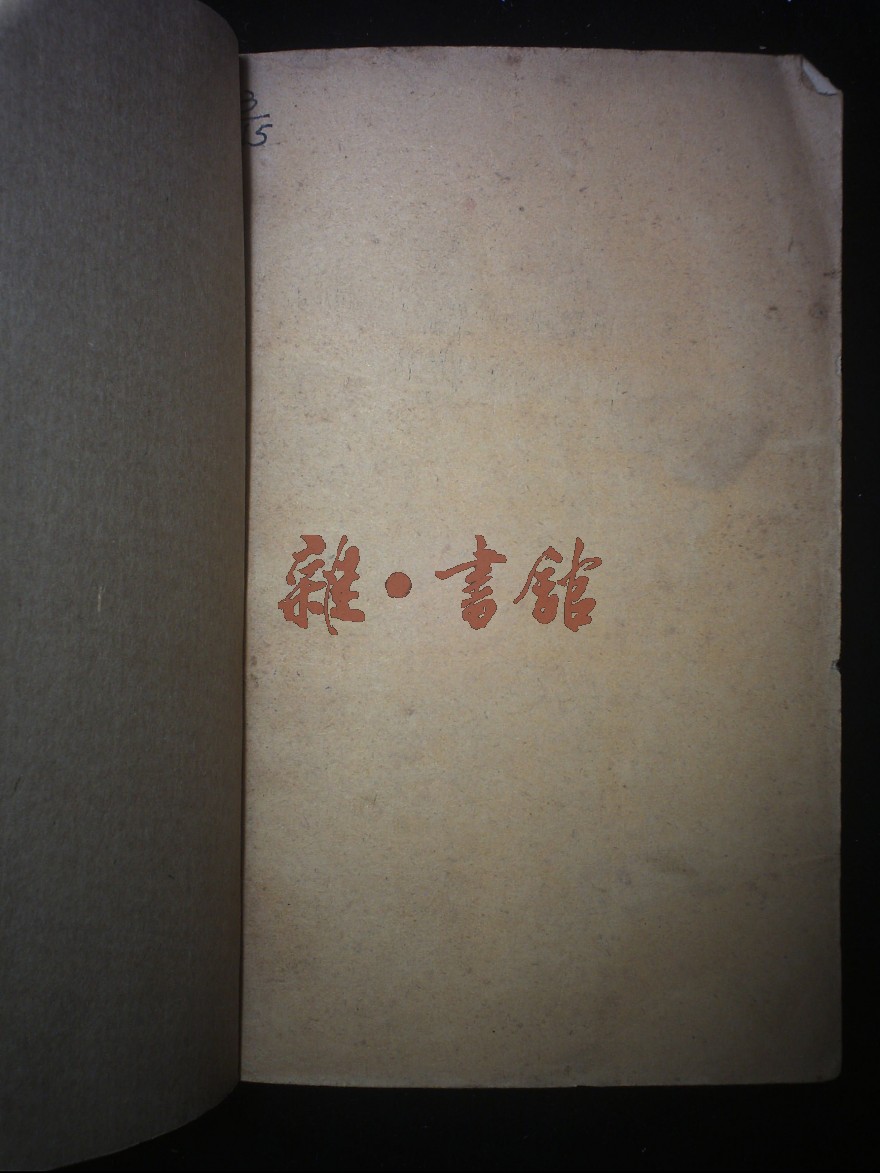 3
15
雜•書館